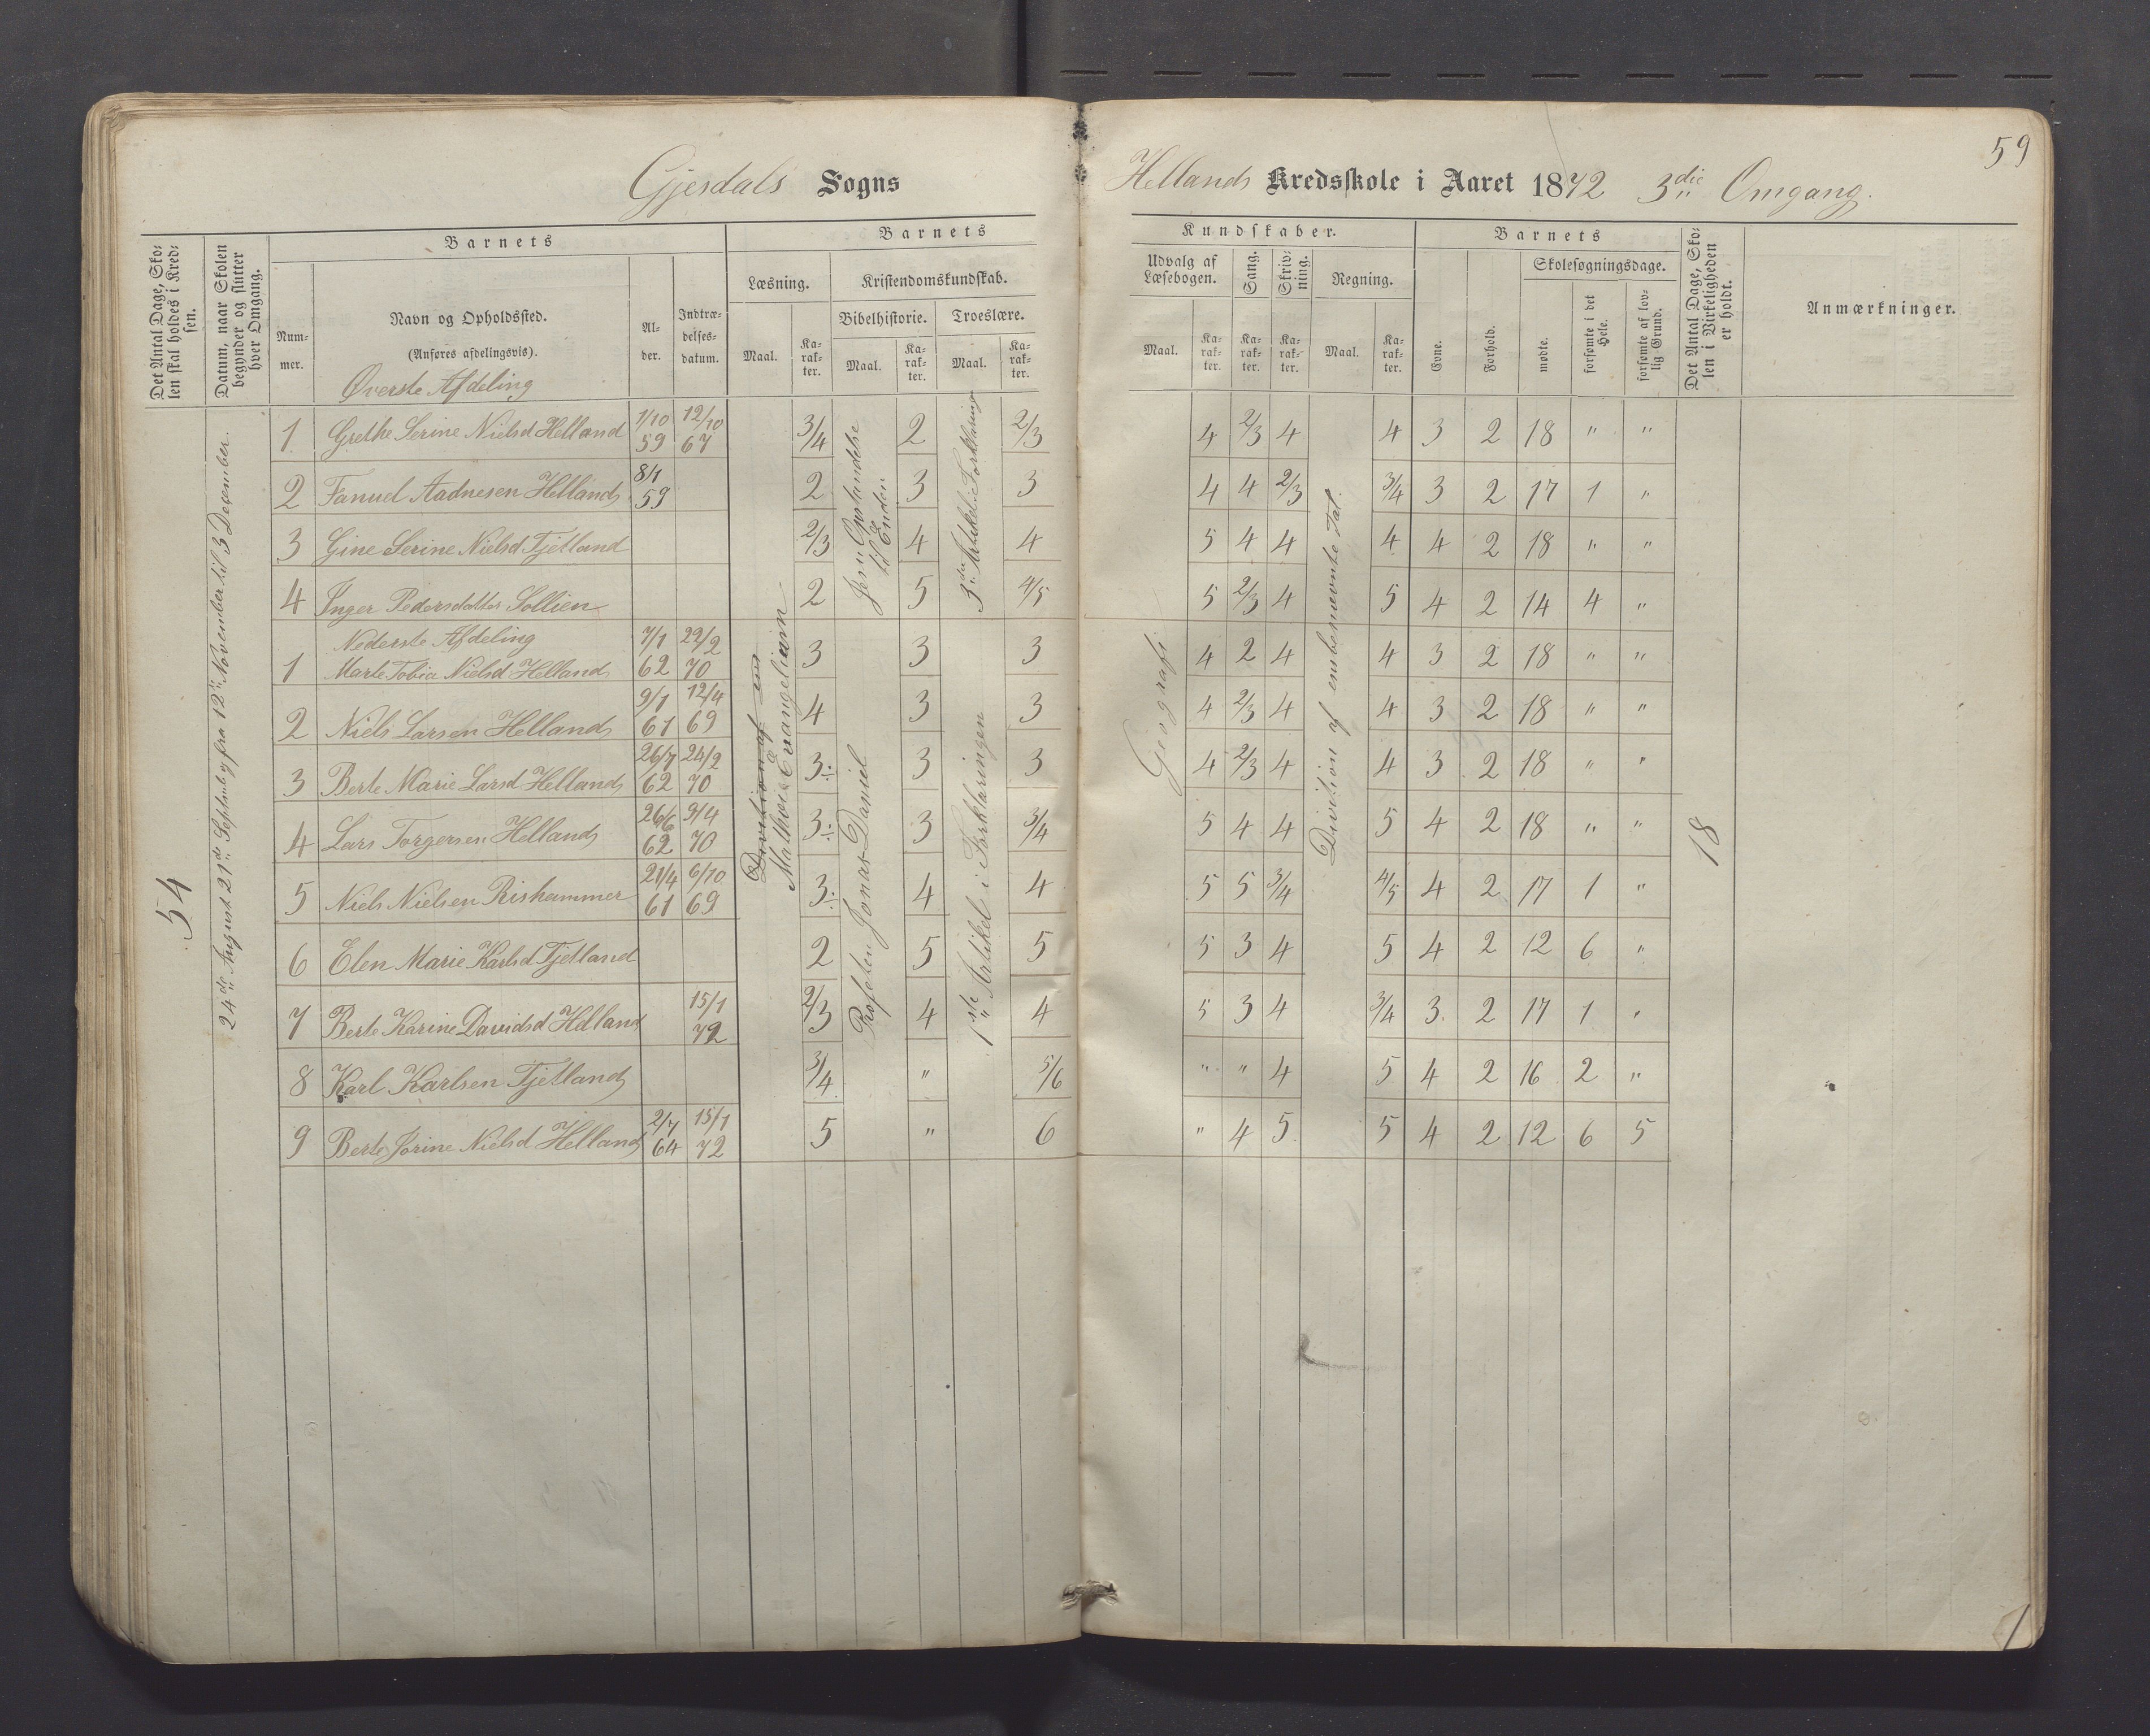 59
Gjesdals Sogns
Hellands Kredsskole i Aaret 1872 3die Omgang.
Det Antal Dage, Skolen skal holdes i Kredsen.
Datum, naar Skolen begynder og slutter hver Omgang.
Barnets
Nummer.
Navn og Opholdssted.
(Anføres afdelingsvis).
Øverste Afdeling
Alder.
Indtrædelsesdatum.
Barnets
Læsning.
Maal.
Karakter.
Kristendomskundskab.
Bibelhistorie.
Maal.
Karakter.
Troeslære.
Maal.
Karakter.
Kundskaber.
Udvalg af Læsebogen.
Maal.
Karakter.
Sang.
Karakter.
Skrivning.
Karakter.
Regning.
Maal.
Karakter.
Barnets
Evne.
Forhold.
Skolesøgningsdage.
mødte.
forsømte i det Hele.
forsømte af lovlig Grund.
Det Antal Dage, Skolen i Virkeligheden er holdt.
Anmærkninger.
54
fra 12te November til 3 December.
Mathæi Evangelium
Jesu Opstandelse til Enden
3die Artikel i Forklaring
Profeten Jonas Daniel
1ste Artikel i Forklaringen
Geografi
Division af ensbenævnte Tal.
18
1 Grethe Serine Nielsd Helland 1/10 59 12/10 67 3/4 2 2/3 4 2/3 4 4 3 2 18 " "
2 Fanuel Aadnesen Helland 8/1 59 2 3 3 4 4 2/3 3/4 3 2 17 1 "
3 Gine Serine Nielsd Tjetland 2/3 4 4 5 4 4 4 4 2 18 " "
4 Inger Pedersdatter Sollien 2 5 4/5 5 2/3 4 5 4 2 14 4 "
Nederste Afdeling
1 Marte Tobia Nielsd Helland 7/1 62 22/2 70 3 3 3 4 2 4 4 3 2 18 " "
2 Niels Larsen Helland 9/1 61 12/4 69 4 3 3 4 2/3 4 4 3 2 18 " "
3 Berte Marie Larsd Helland 26/7 62 24/2 70 3÷ 3 3 4 2/3 4 4 3 2 18 " "
4 Lars Torgersen Helland 26/6 62 9/4 70 3÷ 3 3/4 5 4 4 5 4 2 18 " "
5 Niels Nielsen Rishammer 21/4 61 6/10 69 3÷ 4 4 5 5 3/4 4/5 4 2 17 1 "
6 Elen Marie Karlsd Tjetland 2 5 5 5 3 4 5 4 2 12 6 "
7 Berte Karine Davidsd Helland 15/1 72 2/3 4 4 5 3 4 3/4 3 2 17 1 "
8 Karl Karlsen Tjetland 3/4 " 5/6 " " 4 5 4 2 16 2 "
9 Berte Jorine Nielsd Helland 2/7 64 15/1 72 5 " 6 " 4 5 5 4 2 12 6 5